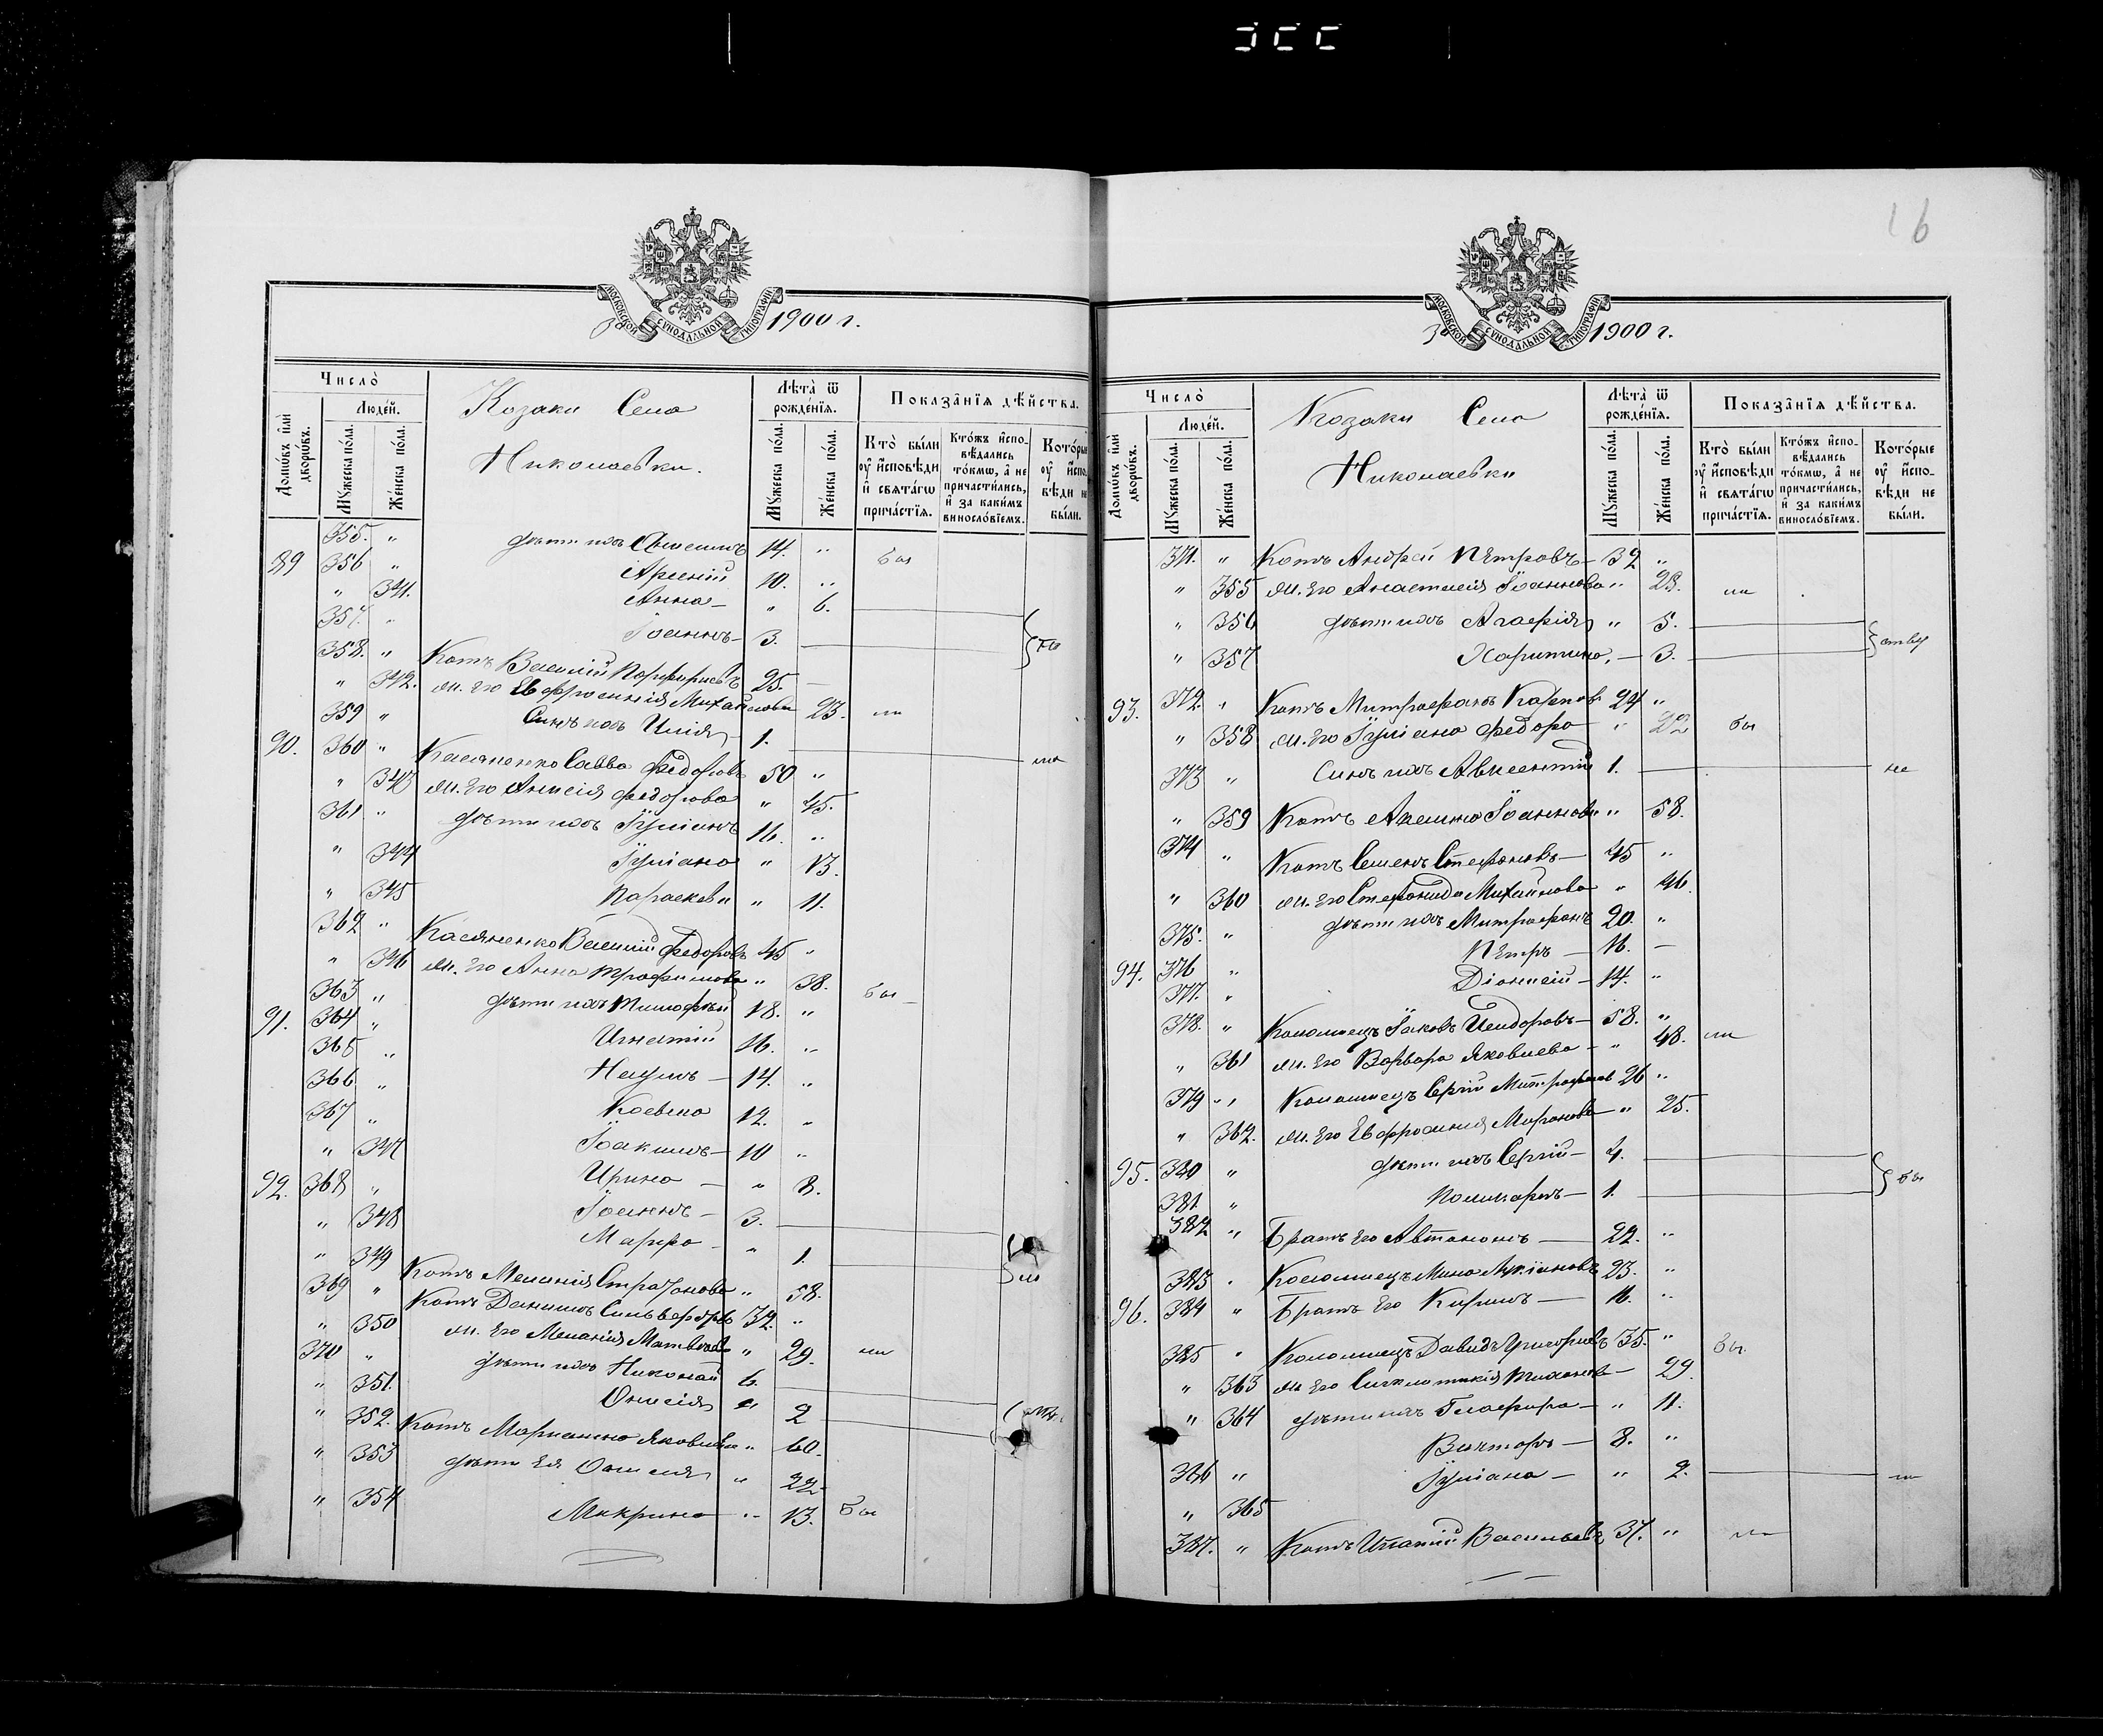 16
МОСКОВСКОЙ СУНОДАЛЬНОЙ ТИПОГРАФІИ
За 1900 г.
Число̀
Людей.
Домѡвъ и҆лѝ дворѡвъ.
Мꙋжеска по́ла.
Же́нска по́ла.
Козаки Села
Николаевки.
Лѣта̀ ѿ рожде́нїѧ.
Мꙋжеска по́ла.
Же́нска по́ла.
Показа̂нїѧ дѣ́йства.
Кто̀ бы́ли ᲂу҆ и҆сповѣди и҆ свѧта́гѡ прича́стїѧ.
Кто́жъ и҆спо-вѣдались то́кмѡ, а҆ не причасти́лись, и҆ за каки́мъ виносло́вїемъ.
Кото́рые ᲂу҆ и҆спо-вѣди не бы́ли.
355. " дѣти ихъ 14. "
89 356 " Арсеній 10. " бы
" 341. Анна " 6.
357. " Іоаннъ 3.
358. " Котъ Василій Порфирьевъ 25.
" 342. ж. его Евфросинія Михайлова 23. ли
359 " Сынъ ихъ Илія 1.
90. 360 " Касяненко Савва Федоровъ 50 "
" 343 ж. его Анисія Федорова " 45.
361 " дѣти ихъ Іуліанъ 16. "
" 344 Іуліана " 13.
" 345 Параскева " 11.
362 " Касяненко Василій Федоровъ 45 "
" 346 ж. его Анна Трофимова " 38.
363 " дѣти ихъ Тимофей 18. " бы
91. 364 " Игнатій 16. "
365 " Наумъ 14. "
366 " 12. "
367 " Іоакимъ 10 "
" 347 Ирина " 8.
92. 368 " Іоаннъ 3.
" 348 Марфа " 1.
" 349 Котъ Меланія " 58.
369 " Котъ Даніилъ Сильвестровъ 32. "
" 350 ж. его Меланія Матвеева " 29. ли
370 " дѣти ихъ Николай 6.
" 351. Онисія " 2
" 352. Котъ Маріанна Яковлева " 60.
" 353 дѣти ея " 22
" 354 Макрина " 13. бы
МОСКОВСКОЙ СУНОДАЛЬНОЙ ТИПОГРАФІИ
За 1900 г.
Число̀
Людей.
Домѡвъ и҆лѝ дворѡвъ.
Мꙋжеска по́ла.
Же́нска по́ла.
Козаки Села
Николаевки
Лѣта̀ ѿ рожде́нїѧ.
Мꙋжеска по́ла.
Же́нска по́ла.
Показа̂нїѧ дѣ́йства.
Кто̀ бы́ли ᲂу҆ и҆сповѣди и҆ свѧта́гѡ прича́стїѧ.
Кто́жъ и҆спо-вѣдались то́кмѡ, а҆ не причасти́лись, и҆ за каки́мъ виносло́вїемъ.
Кото́рые ᲂу҆ и҆спо-вѣди не бы́ли.
371. " Котъ Андрей Петровъ 32 "
" 355 ж. его Анастасія Іоаннова " 28. ли
" 356 дѣти ихъ Агафія " 5.
" 357 Харитина " 3.
93. 372. " Котъ Митрофанъ Карповъ 24 "
" 358 ж. его Іуліана Федоро " 22 бы
373 " Сынъ ихъ Авксентій 1. не
" 359 Котъ Акилина Іоаннова " 58.
374 " Котъ Семенъ Стефановъ 45 "
" 360 ж. его Стефанида Михайлова " 46.
375. " дѣти ихъ Митрофанъ 20. "
94. 376 " Петръ 16.
377. " Діонисій 14. "
378. " Коломіецъ Іаковъ Исидоровъ 58. "
" 361 ж. его Варвара Яковлева " 48. ли
379 " Коломіецъ Сергій Митрофановъ 26 "
" 362. ж. его Евфросинія Миронова " 25.
95. 380 " дѣти ихъ Сергій 4.
381. " Поликарпъ 1. бы
382 " Братъ его Автономъ 22. "
383 " Коломіецъ Мина Лукіановъ 23. "
96. 384 " Братъ его Кирилъ 16. "
385 " Коломіецъ Давидъ Григорьевъ 35. " бы
" 363 ж. его Синклитикія Тихонова 29.
" 364 дѣти ихъ Глафира " 11.
386 " Викторъ 8. "
" 365 Іуліана " 2.
387. " Котъ Ипатій Васильевъ 37. " ли